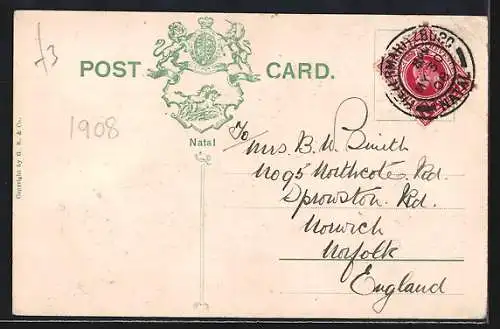 £3
POST CARD.
Natal
PIETERMARITZBURG
NATAL
1908
Copyright by H. R. & Co.
To
Mrs. B. W. Smith
No 95 Northcote Rd
Sprowston Rd.
Norwich
Norfolk
England